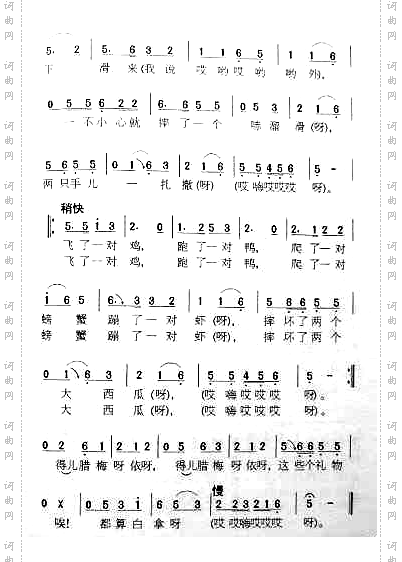 5. 2 | 5. 6 3 2 | 1 1 6 5 | 2 1 6 |
下 滑 来 (我 说 哎 哟 哎 哟 哟 外),
0 5 5 6 2 2 | 5. 6 5 3 | 2 1 6 |
一 不 小 心 就 摔 了 一 个 哧 溜 滑 (呀),
5 6 5 6 | 0 1 6 | 2 1 6 | 5 5 4 5 6 | 5 -
两 只 手 儿 一 扎 撒 (呀) (哎 嗨 哎 哎 哎 呀)。
稍快
5. 5 1 3 | 2. 0 | 5 5 3 1 | 2. 0 | 2. 1 2 4 |
飞 了 一 对 鸡, 跑 了 一 对 鸭, 爬 了 一 对
飞 了 一 对 鸡, 跑 了 一 对 鸭, 爬 了 一 对
1 6 5 | 6. 3 2 3 2 | 0 1 6 | 5 6 6 5 5
螃 蟹 蹦 了 一 对 虾 (呀), 摔 坏 了 两 个
螃 蟹 蹦 了 一 对 虾 (呀), 摔 坏 了 两 个
0 1 6 | 2 1 6 | 5 5 4 5 6 | 5 -
大 西 瓜 (呀), (哎 嗨 哎 哎 哎 呀)。
大 西 瓜 (呀), (哎 嗨 哎 哎 哎 呀)。
0 2 6 1 | 2 1 2 | 0 2 6 1 | 2 1 2 | 5 6 6 5 5
得儿 腊 梅 呀 依 呀, 得儿 腊 梅 呀 依 呀, 这 些 个 礼 物
慢
0 X | 0 5 3 1 | 2 1 2 | 2 2 3 2 1 6 | 5 -
唉! 都 算 白 拿 呀 (哎 哎 嗨 哎 哎 哎 呀)。
词曲网